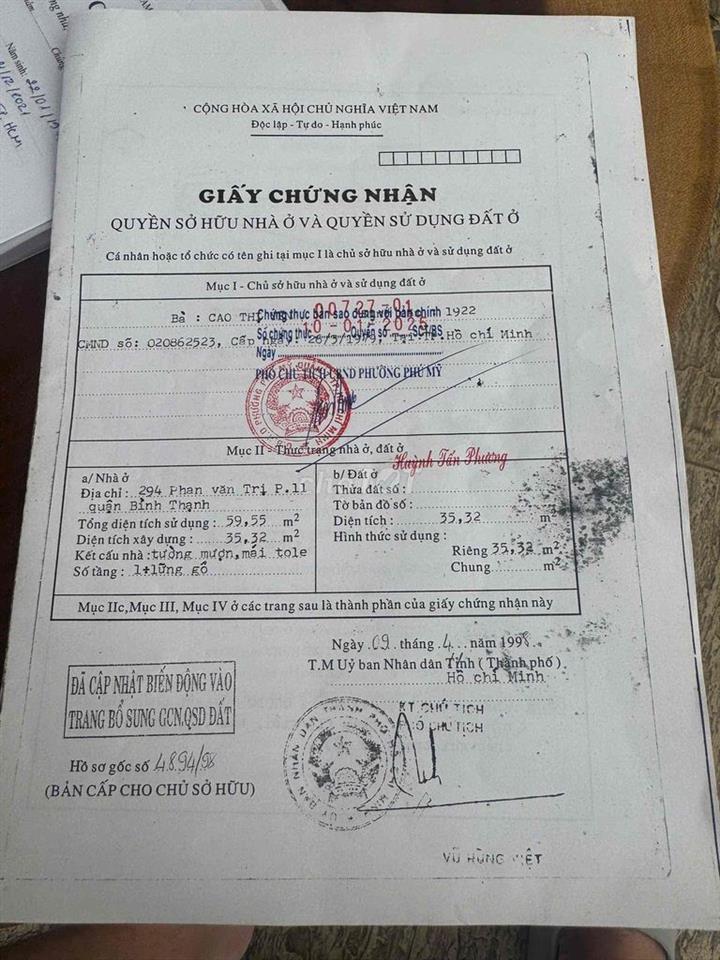 Năm sinh: 22/01/19
/12/2021
HCM
CỘNG HÒA XÃ HỘI CHỦ NGHĨA VIỆT NAM
Độc lập - Tự do - Hạnh phúc
GIẤY CHỨNG NHẬN
QUYỀN SỞ HỮU NHÀ Ở VÀ QUYỀN SỬ DỤNG ĐẤT Ở
Cá nhân hoặc tổ chức có tên ghi tại mục I là chủ sở hữu nhà ở và sử dụng đất ở
Mục I - Chủ sở hữu nhà ở và sử dụng đất ở
Bà : CAO THỊ 1922
00727-01
Chứng thực bản sao đúng với bản chính
CMND số: 020862523, Cấp ngày: 26/3/1979, Tại Tp.Hồ chí Minh
Số chứng thực Quyển số SCT/BS
10-01-2025
Ngày
PHÓ CHỦ TỊCH UBND PHƯỜNG PHÚ MỸ
Mục II - Thực trạng nhà ở, đất ở
Huỳnh Tấn Phương
a/ Nhà ở
Địa chỉ : 294 Phan văn Trị P.11
quận Bình Thạnh
Tổng diện tích sử dụng : 59,55 m2
Diện tích xây dựng : 35,32 m2
Kết cấu nhà : tường mượn, mái tole
Số tầng : 1+lửng gỗ
b/ Đất ở
Thửa đất số :
Tờ bản đồ số :
Diện tích : 35,32 m2
Hình thức sử dụng :
Riêng 35,32 m2
Chung m2
Mục IIc, Mục III, Mục IV ở các trang sau là thành phần của giấy chứng nhận này
Ngày 09 tháng 4 năm 1998
T.M Uỷ ban Nhân dân Tỉnh ( Thành phố )
Hồ chí Minh
KT CHỦ TỊCH
PHÓ CHỦ TỊCH
ĐÃ CẬP NHẬT BIẾN ĐỘNG VÀO
TRANG BỔ SUNG GCN,QSD ĐẤT
Hồ sơ gốc số 4894/98
(BẢN CẤP CHO CHỦ SỞ HỮU)
VŨ HÙNG VIỆT